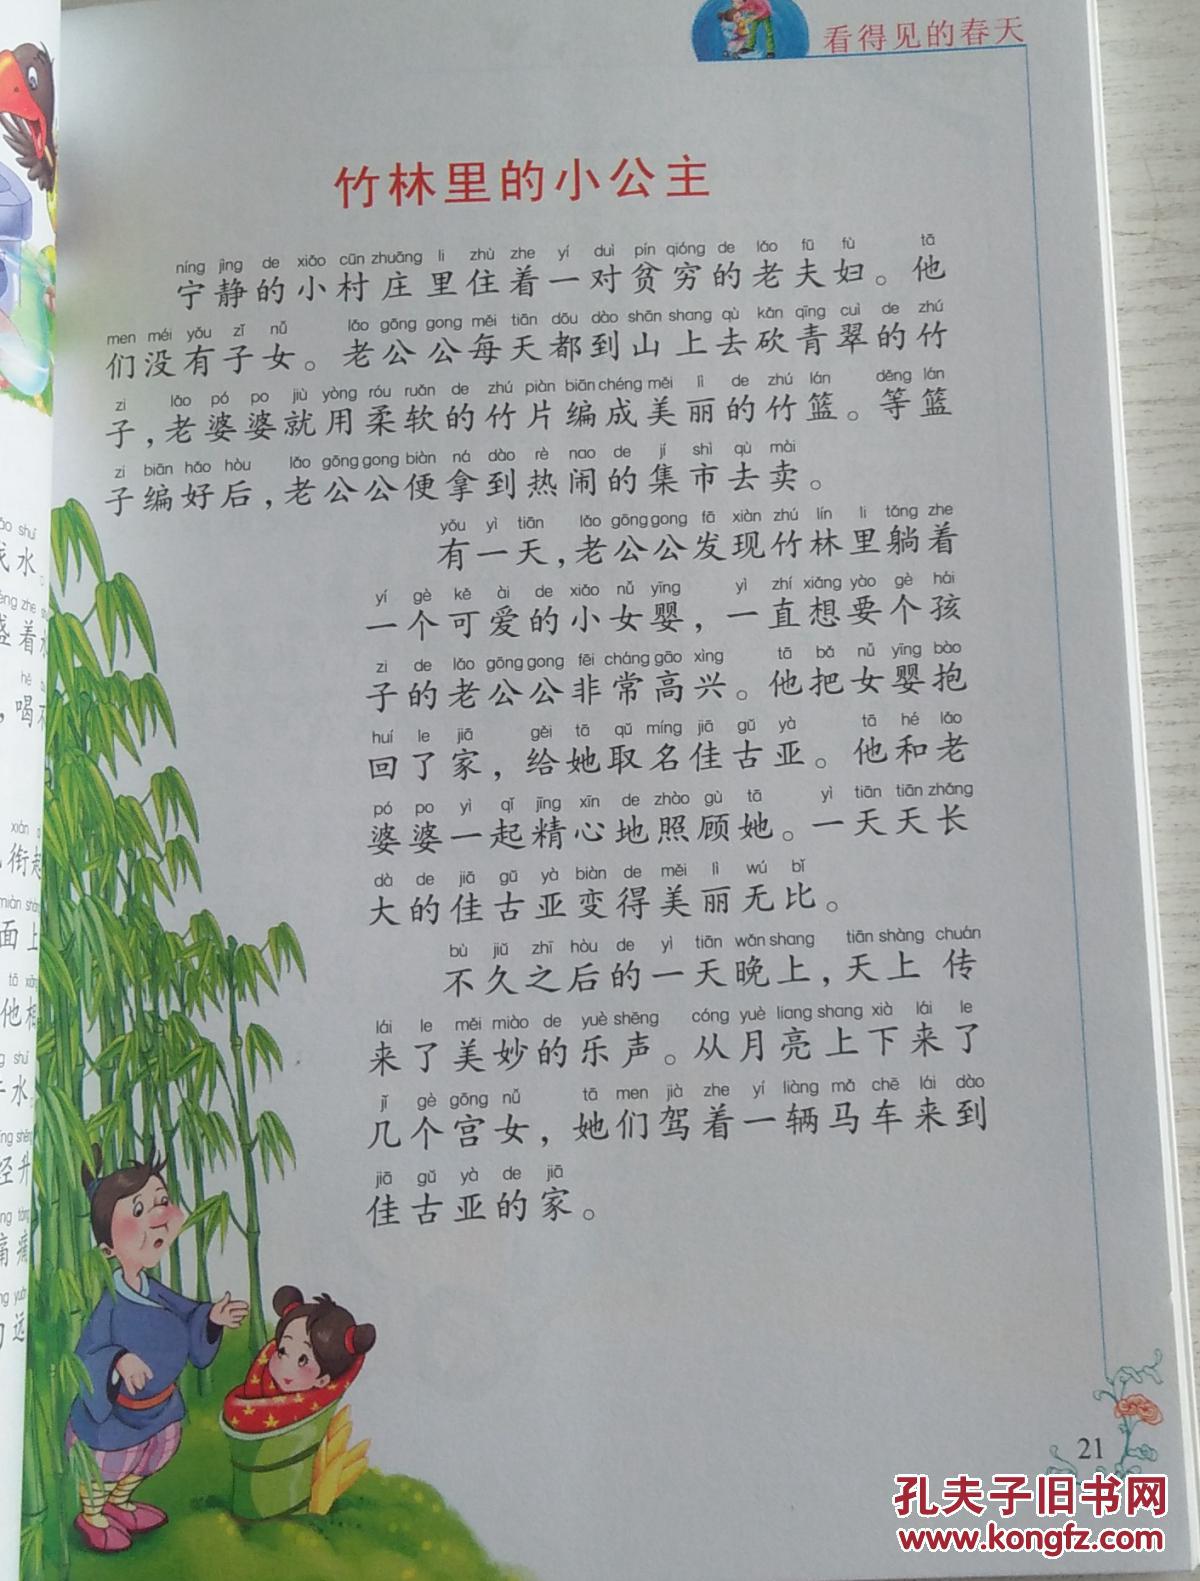 看得见的春天
竹林里的小公主
níng jìng de xiǎo cūn zhuāng li zhù zhe yí duì pín qióng de lǎo fū fù tā
宁静的小村庄里住着一对贫穷的老夫妇。他
men méi yǒu zǐ nǚ lǎo gōng gong měi tiān dōu dào shān shang qù kǎn qīng cuì de zhú
们没有子女。老公公每天都到山上去砍青翠的竹
zi lǎo pó po jiù yòng róu ruǎn de zhú piàn biān chéng měi lì de zhú lán děng lán
子，老婆婆就用柔软的竹片编成美丽的竹篮。等篮
zi biān hǎo hòu lǎo gōng gong biàn ná dào rè nao de jí shì qù mài
子编好后，老公公便拿到热闹的集市去卖。
yǒu yì tiān lǎo gōng gong fā xiàn zhú lín li tǎng zhe
有一天，老公公发现竹林里躺着
yí gè kě ài de xiǎo nǚ yīng yì zhí xiǎng yào gè hái
一个可爱的小女婴，一直想要个孩
zi de lǎo gōng gong fēi cháng gāo xìng tā bǎ nǚ yīng bào
子的老公公非常高兴。他把女婴抱
huí le jiā gěi tā qǔ míng jiā gǔ yà tā hé lǎo
回了家，给她取名佳古亚。他和老
pó po yì qǐ jīng xīn de zhào gù tā yì tiān tiān zhǎng
婆婆一起精心地照顾她。一天天长
dà de jiā gǔ yà biàn de měi lì wú bǐ
大的佳古亚变得美丽无比。
bù jiǔ zhī hòu de yì tiān wǎn shang tiān shàng chuán
不久之后的一天晚上，天上传
lái le měi miào de yuè shēng cóng yuè liang shang xià lái le
来了美妙的乐声。从月亮上下来了
jǐ gè gōng nǚ tā men jià zhe yí liàng mǎ chē lái dào
几个宫女，她们驾着一辆马车来到
jiā gǔ yà de jiā
佳古亚的家。
21
孔夫子旧书网
www.kongfz.com